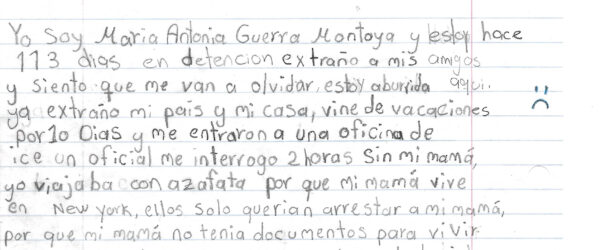 Yo Soy Maria Antonia Guerra Montoya y estoy hace
113 dias en detencion extraño a mis amigos
y siento que me van a olvidar, estoy aburrida aqui.
ya extraño mi pais y mi casa, vine de vacaciones
por 10 Dias y me entraron a una oficina de
ice un oficial me interrogo 2 horas Sin mi mamá,
yo viajaba con azafata por que mi mamá vive
en New york, ellos solo querian arrestar a mi mamá,
por que mi mamá no tenia documentos para vivir